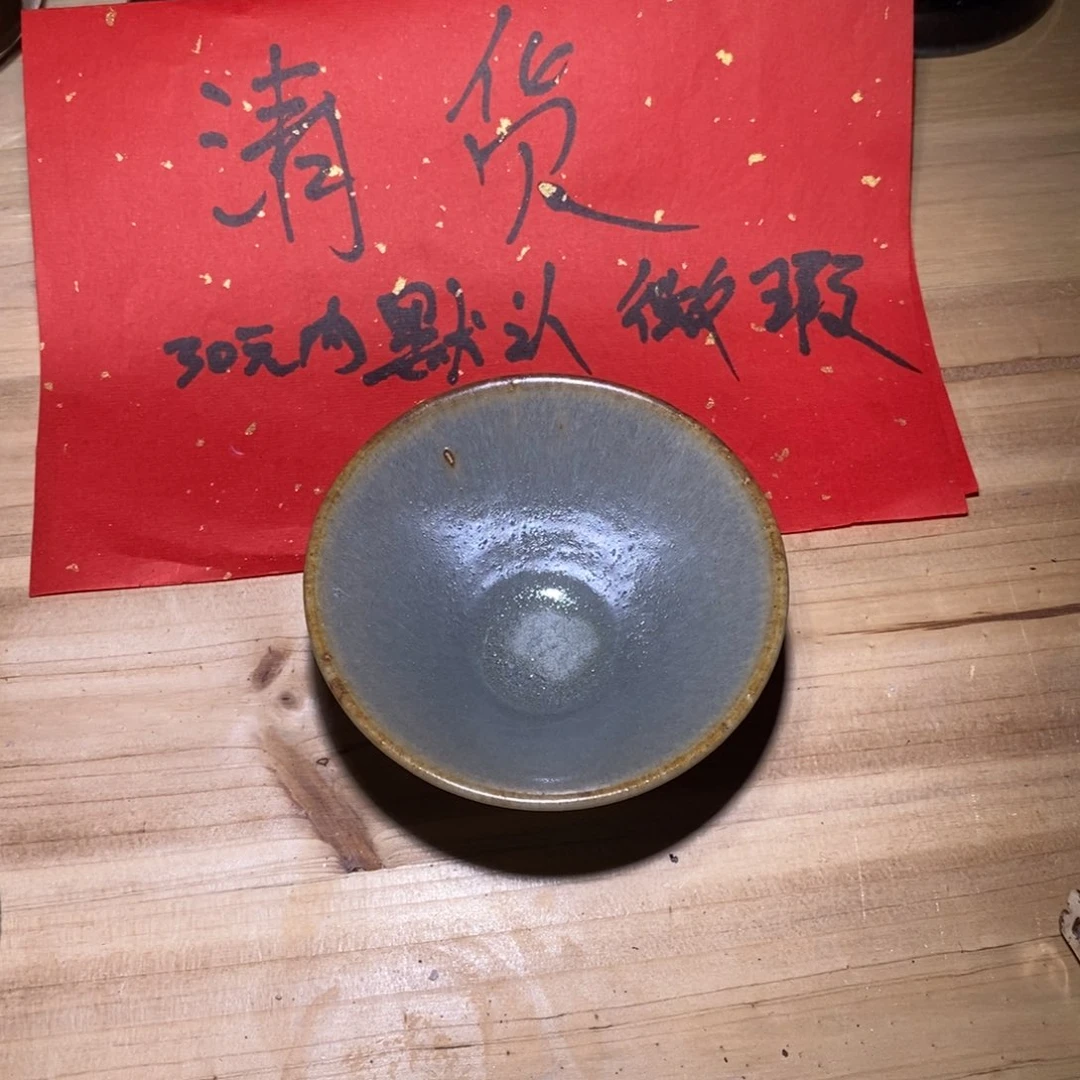 清货
30元内默认微瑕